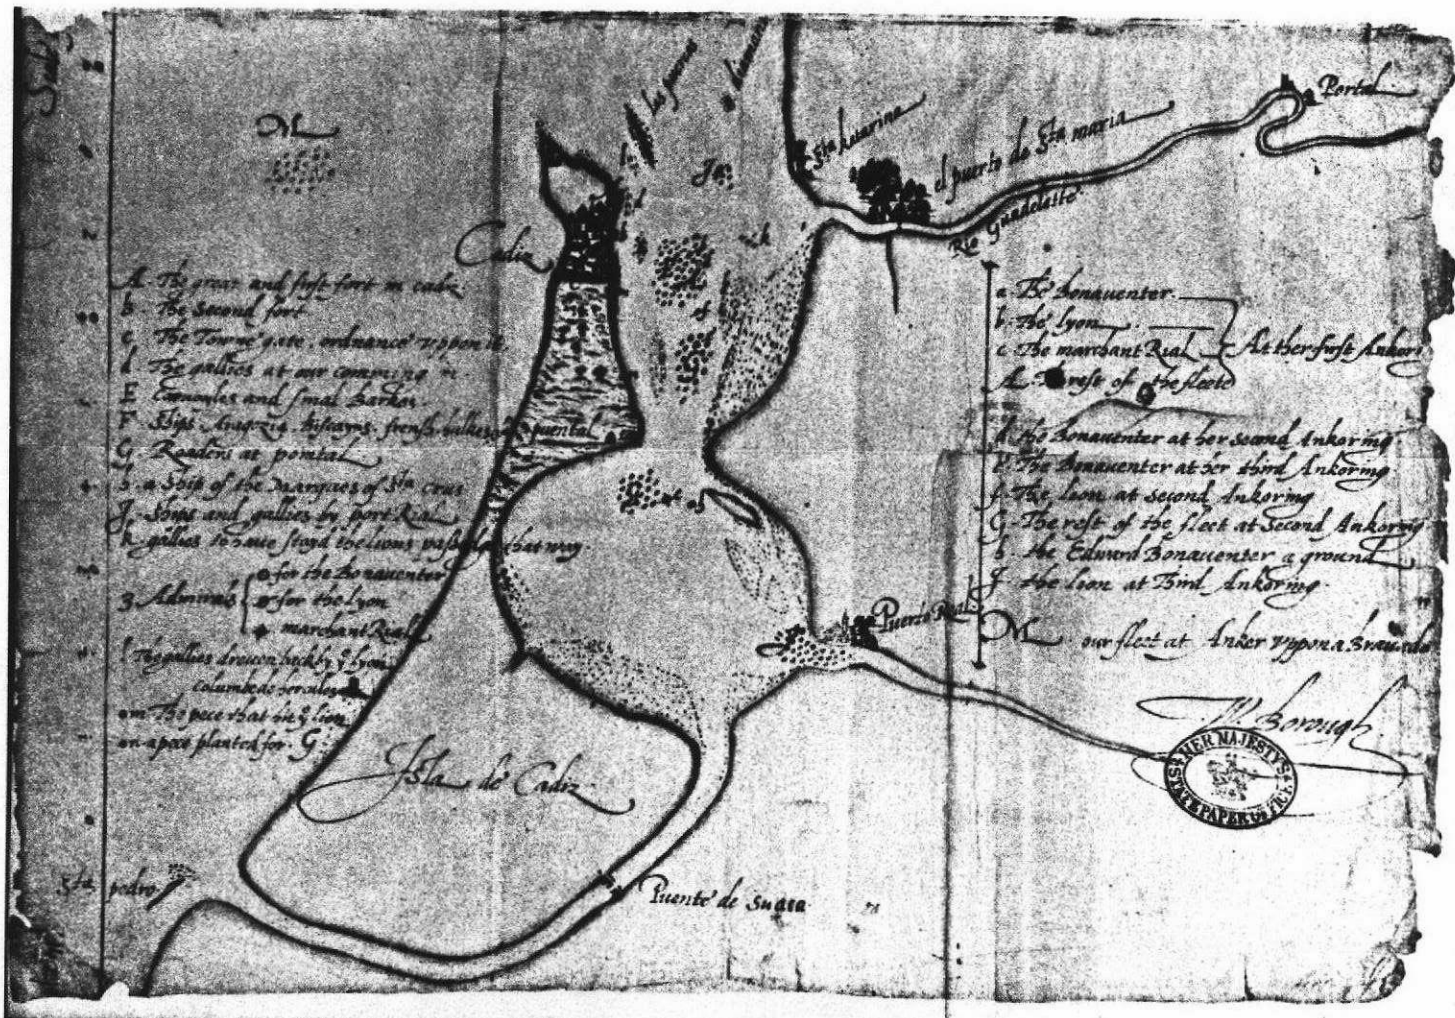 las puercas
a diamant
M
Sta katarina
el puerto de Sta maria
Portal
Rio Guadelette
Cadiz
A. The great and first fort in cadiz
b. The second fort
c. The Towne gate, ordnance uppon it
d. The gallies at our comming in
E. Carauyles and smal Barkes.
F. Ships Aragozia, biscayns, french hulkes
puental
G. Roaders at pointal
h. a Ship of the Marques of Sta Crus
J. Ships and gallies by port Rial
k. gallies to haue stayd the lions passage that way.
3. Admirals
for the Bonauenter
for the Lyon
marchant Rial
l The gallies dreuen back by ye Lyon
columbe de hercules
m. The pece that hit ye lion
n. a pece planted for. G
a. The Bonauenter.
b. The Lyon
c. The marchant Rial
At her first Ankor
A. The rest of the fleete
d. the Bonauenter at her second Ankoring.
e. The Bonauenter at her third Ankoring
f. The lion at second Ankoring
G. The rest of the fleet at Second Ankoring
h. the Edward Bonauenter a ground
J. the lion at Third Ankoring.
M our fleet at Anker uppon a Brauado
Puerto Rial
W. Borough
HER MAJESTY'S STATE PAPER OFFICE
Isla de Cadiz
Sta pedro
Puente de Suaza